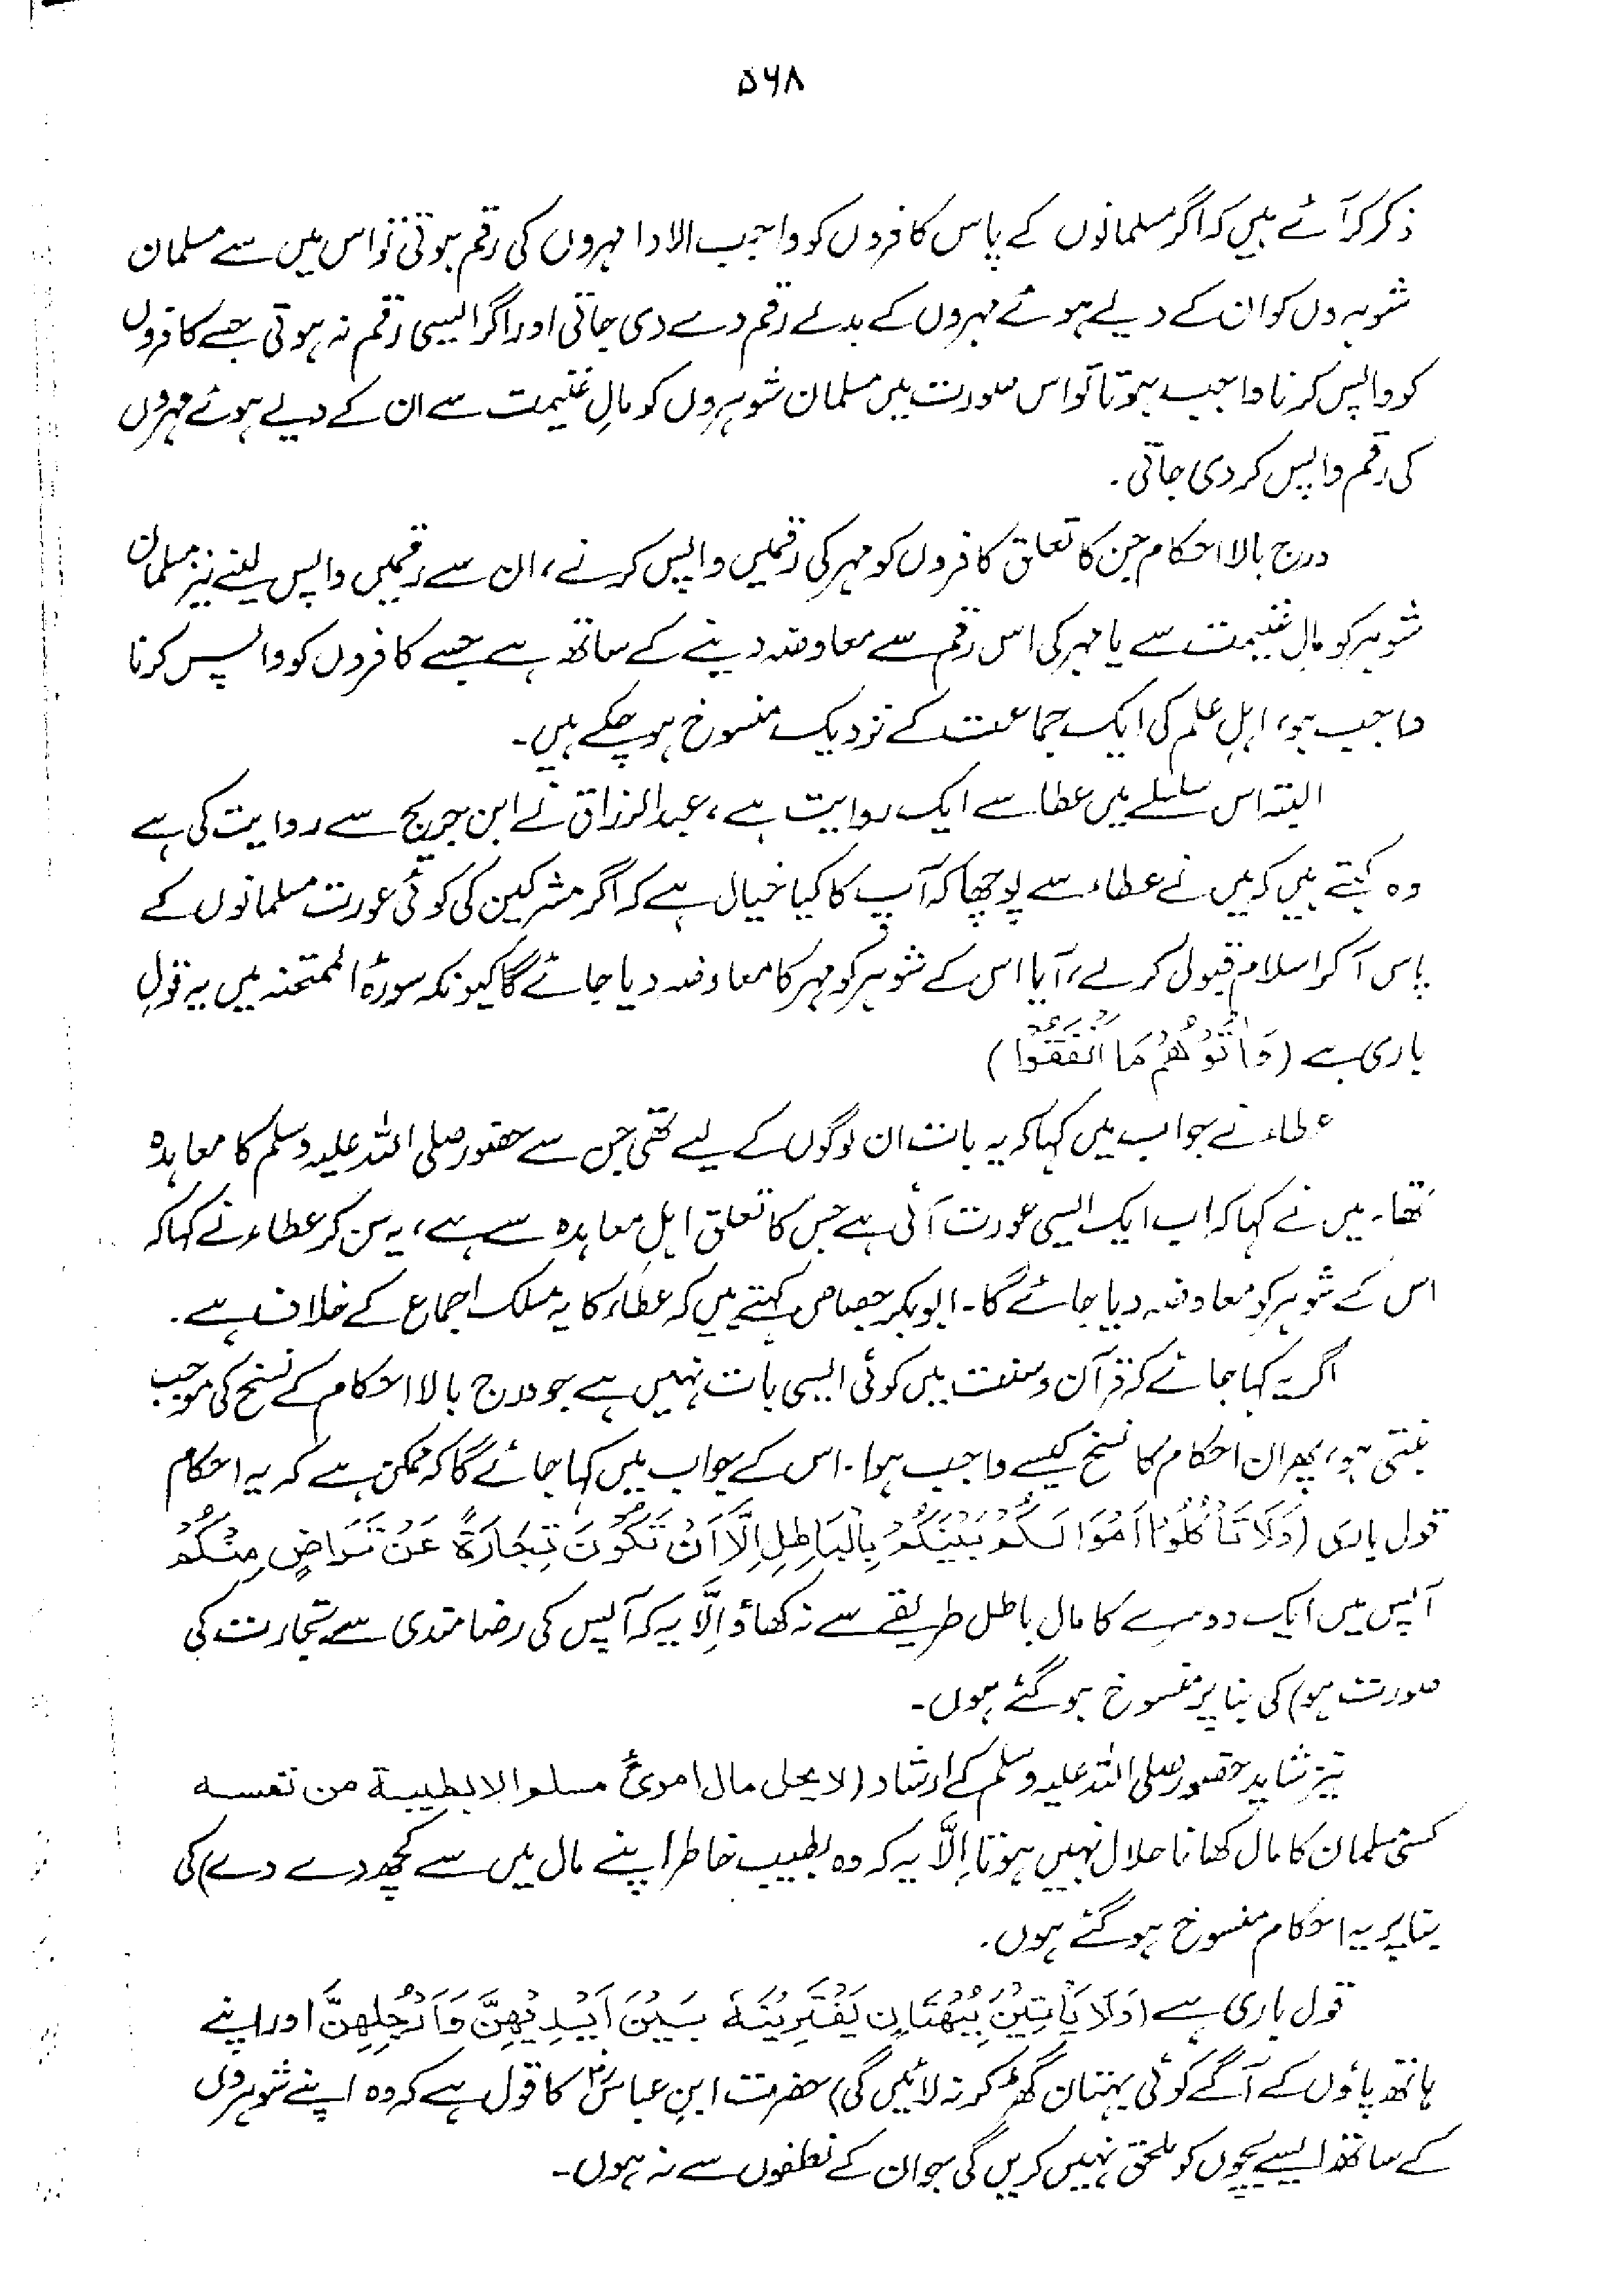 ۵۶۸
ذکر کر آئے ہیں کہ اگر مسلمانوں کے پاس کافروں کو واجب الادا مہروں کی رقم ہوتی تو اس میں سے مسلمان
شوہروں کو ان کے دیے ہوئے مہروں کے بدلے رقم دے دی جاتی اور اگر ایسی رقم نہ ہوتی جسے کافروں
کو واپس کرنا واجب ہوتا تو اس صورت میں مسلمان شوہروں کو مالِ غنیمت سے ان کے دیے ہوئے مہروں
کی رقم واپس کر دی جاتی۔
درج بالا احکام جن کا تعلق کافروں کو مہر کی رقمیں واپس کرنے، ان سے رقمیں واپس لینے نیز مسلمان
شوہر کو مالِ غنیمت سے یا مہر کی اس رقم سے معاوضہ دینے کے ساتھ ہے جسے کافروں کو واپس کرنا
واجب ہو، اہلِ علم کی ایک جماعت کے نزدیک منسوخ ہو چکے ہیں۔
البتہ اس سلسلے میں عطا سے ایک روایت ہے، عبدالرزاق نے ابن جریج سے روایت کی ہے
وہ کہتے ہیں کہ میں نے عطاء سے پوچھا کہ آپ کا کیا خیال ہے کہ اگر مشرکین کی کوئی عورت مسلمانوں کے
پاس آ کر اسلام قبول کرلے، آیا اس کے شوہر کو مہر کا معاوضہ دیا جائے گا کیونکہ سورۂ الممتحنہ میں یہ قولِ
باری ہے (وَاٰتُوْهُمْ مَا اَنْفَقُوْا)
عطاء نے جواب میں کہا کہ یہ بات ان لوگوں کے لیے تھی جن سے حضور صلی اللہ علیہ وسلم کا معاہدہ
تھا۔ میں نے کہا کہ اب ایک ایسی عورت آئی ہے جس کا تعلق اہلِ معاہدہ سے ہے، یہ سن کر عطاء نے کہا کہ
اس کے شوہر کو معاوضہ دیا جائے گا۔ ابوبکر جصاص کہتے ہیں کہ عطاء کا یہ مسلک اجماع کے خلاف ہے۔
اگر یہ کہا جائے کہ قرآن و سنت میں کوئی ایسی بات نہیں ہے جو درج بالا احکام کے نسخ کی موجب
بنتی ہو، پھر ان احکام کا نسخ کیسے واجب ہوا۔ اس کے جواب میں کہا جائے گا کہ ممکن ہے کہ یہ احکام
قول باری (وَلَا تَأْكُلُوْا اَمْوَالَكُمْ بَيْنَكُمْ بِالْبَاطِلِ اِلَّا اَنْ تَكُوْنَ تِجَارَةً عَنْ تَرَاضٍ مِنْكُمْ
آپس میں ایک دوسرے کا مال باطل طریقے سے نہ کھاؤ اِلَّا یہ کہ آپس کی رضامندی سے تجارت کی
صورت ہو) کی بنا پر منسوخ ہو گئے ہوں۔
نیز شاید حضور صلی اللہ علیہ وسلم کے ارشاد (لا يحل مال امرئ مسلم الا بطيبة من نفسه
کسی مسلمان کا مال کھانا حلال نہیں ہوتا اِلَّا یہ کہ وہ بطیب خاطر اپنے مال میں سے کچھ دے دے) کی
بنا پر یہ احکام منسوخ ہو گئے ہوں۔
قول باری ہے (وَلَا يَأْتِيْنَ بِبُهْتَانٍ يَفْتَرِيْنَهٗ بَيْنَ اَيْدِيْهِنَّ وَاَرْجُلِهِنَّ اور اپنے
ہاتھ پاؤں کے آگے کوئی بہتان گھڑ کر نہ لائیں گی) حضرت ابنِ عباسؓ کا قول ہے کہ وہ اپنے شوہروں
کے ساتھ ایسے بچوں کو ملحق نہیں کریں گی جو ان کے نطفوں سے نہ ہوں۔